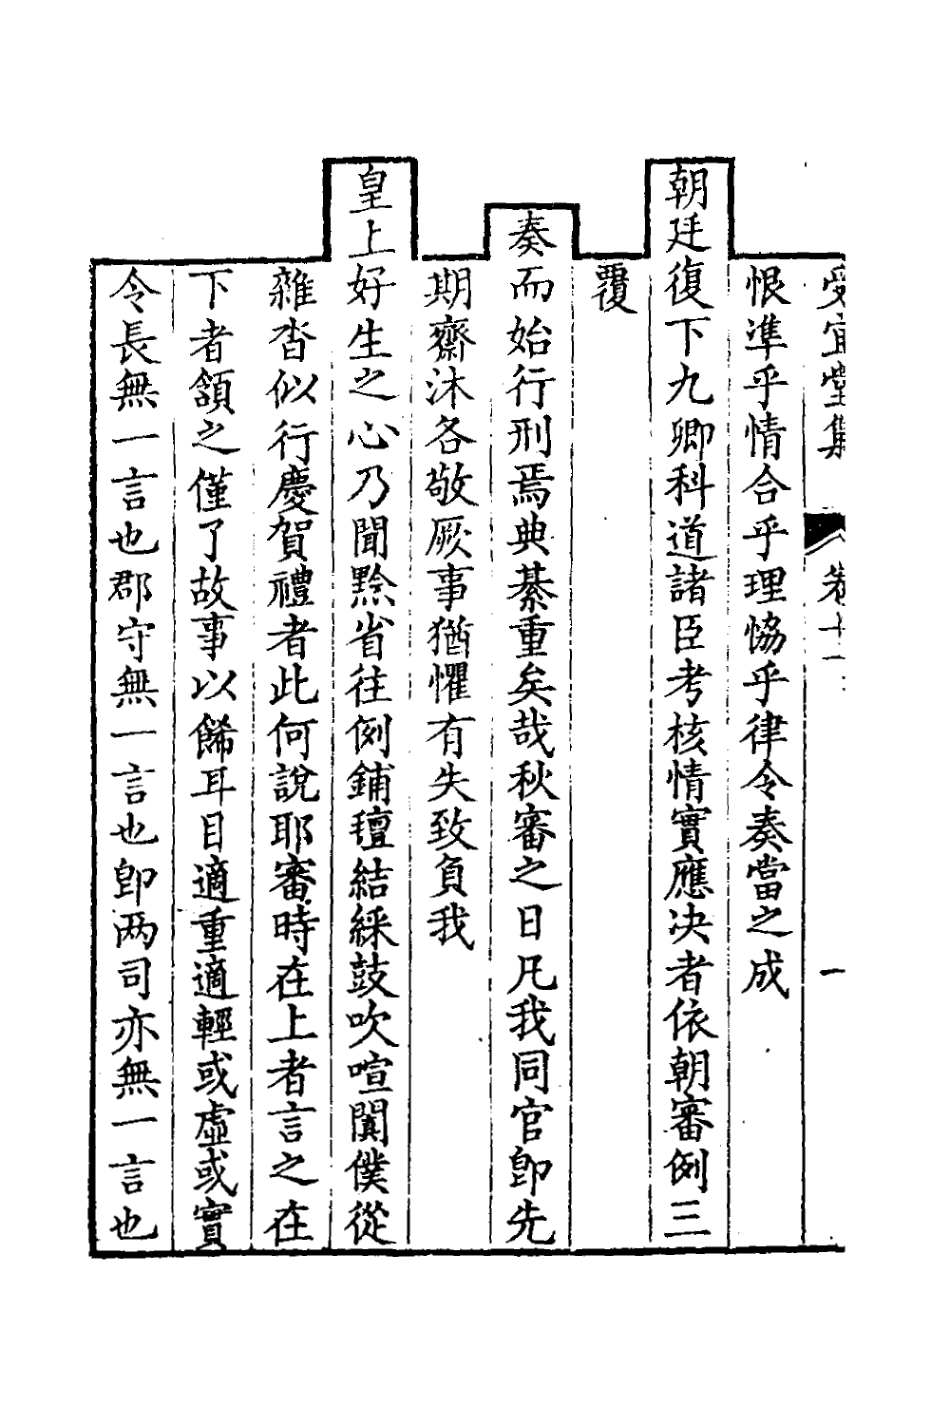 受宜堂集 卷十一 一
恨準乎情合乎理恊乎律令奏當之成
朝廷復下九卿科道諸臣考核情實應決者依朝審例三
覆
奏而始行刑焉典綦重矣哉秋審之日凡我同官即先
期齋沐各敬厥事猶懼有失致負我
皇上好生之心乃聞黔省往例鋪氊結綵鼓吹喧闐僕從
雜沓似行慶賀禮者此何說耶審時在上者言之在
下者頷之僅了故事以餙耳目適重適輕或虛或實
令長無一言也郡守無一言也即两司亦無一言也